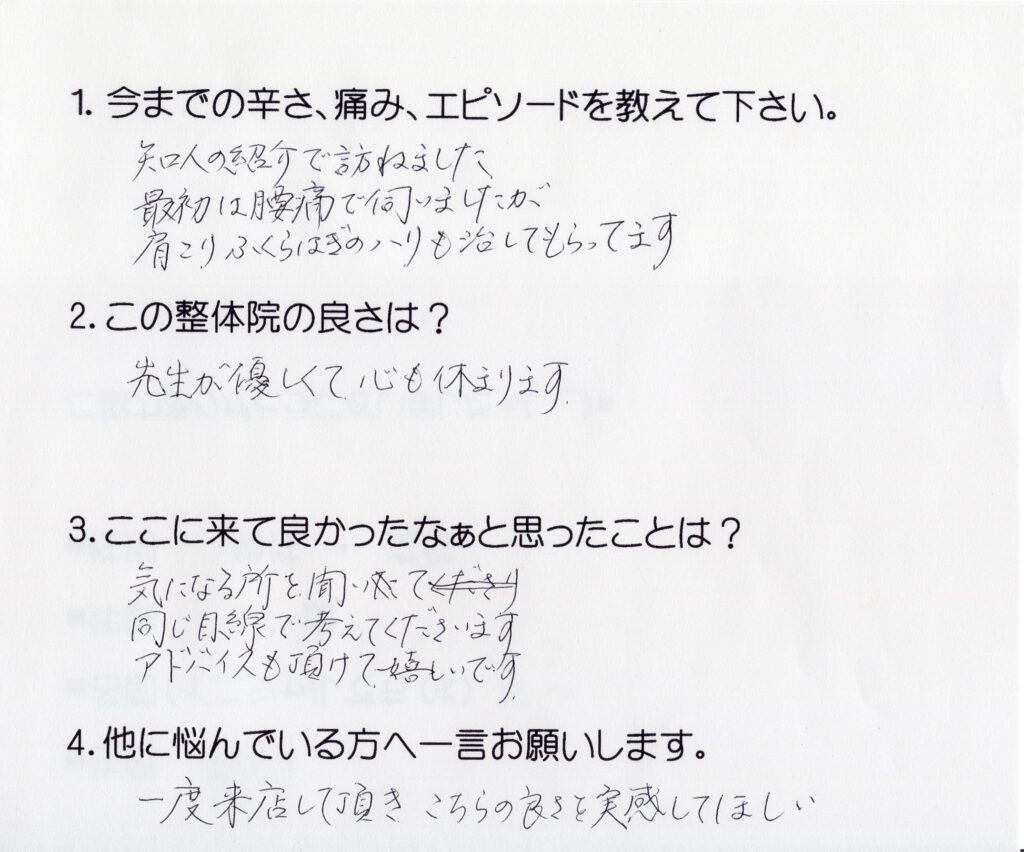 1. 今までの辛さ、痛み、エピソードを教えて下さい。
知人の紹介で訪ねました
最初は腰痛で伺いましたが
肩こりふくらはぎのハリも治してもらってます
2. この整体院の良さは？
先生が優しくて心も休まります
3. ここに来て良かったなぁと思ったことは？
気になる所を聞いて
同じ目線で考えてくださいます
アドバイスも頂けて嬉しいです
4. 他に悩んでいる方へ一言お願いします。
一度来店して頂き こちらの良さを実感してほしい